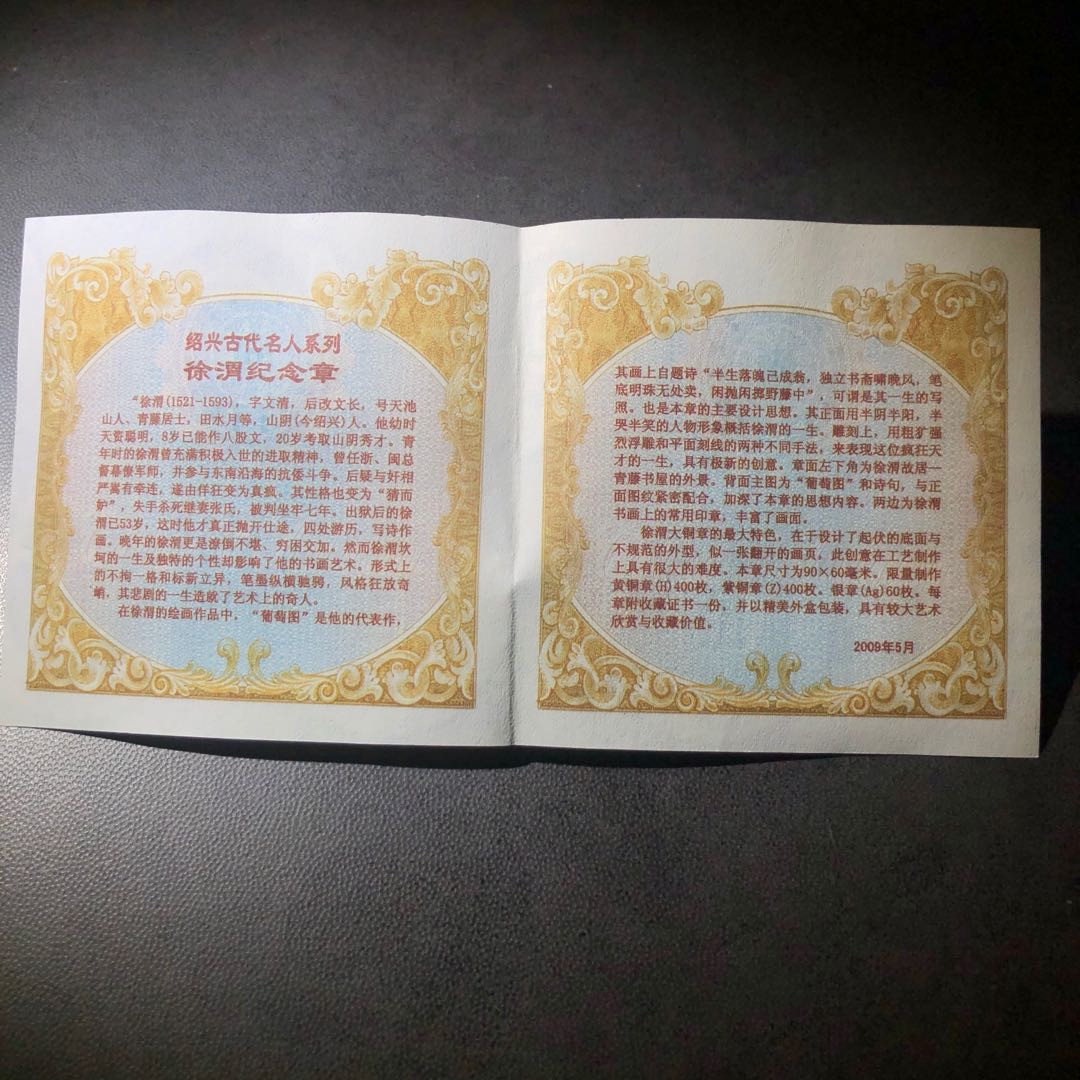 绍兴古代名人系列
徐渭纪念章
“徐渭(1521-1593)，字文清，后改文长，号天池
山人、青藤居士，田水月等，山阴(今绍兴)人。他幼时
天资聪明，8岁已能作八股文，20岁考取山阴秀才。青
年时的徐渭曾充满积极入世的进取精神，曾任浙、闽总
督幕僚军师，并参与东南沿海的抗倭斗争。后疑与奸相
严嵩有牵连，遂由佯狂变为真疯。其性格也变为“猜而
妒”，失手杀死继妻张氏，被判坐牢七年。出狱后的徐
渭已53岁，这时他才真正抛开仕途，四处游历，写诗作
画。晚年的徐渭更是潦倒不堪、穷困交加。然而徐渭坎
坷的一生及独特的个性却影响了他的书画艺术。形式上
的不拘一格和标新立异，笔墨纵横驰骋，风格狂放奇
峭，其悲剧的一生造就了艺术上的奇人。
在徐渭的绘画作品中，“葡萄图”是他的代表作，
其画上自题诗“半生落魄已成翁，独立书斋啸晚风，笔
底明珠无处卖，闲抛闲掷野藤中”，可谓是其一生的写
照。也是本章的主要设计思想。其正面用半阴半阳，半
哭半笑的人物形象概括徐渭的一生。雕刻上，用粗犷强
烈浮雕和平面刻线的两种不同手法，来表现这位疯狂天
才的一生，具有极新的创意。章面左下角为徐渭故居—
青藤书屋的外景。背面主图为“葡萄图”和诗句，与正
面图纹紧密配合，加深了本章的思想内容。两边为徐渭
书画上的常用印章，丰富了画面。
徐渭大铜章的最大特色，在于设计了起伏的底面与
不规范的外型，似一张翻开的画页。此创意在工艺制作
上具有很大的难度。本章尺寸为90×60毫米。限量制作
黄铜章(H)400枚，紫铜章(Z)400枚。银章(Ag)60枚。每
章附收藏证书一份，并以精美外盒包装，具有较大艺术
欣赏与收藏价值。
2009年5月